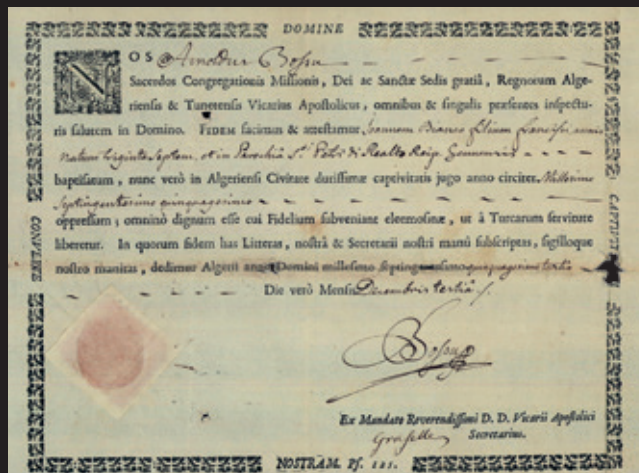 DOMINE
NOS Arnoldus Bossu
Sacerdos Congregationis Missionis, Dei ac Sanctæ Sedis gratiâ, Regnorum Alge-
riensis & Tunetensis Vicarius Apostolicus, omnibus & singulis præsentes inspectu-
ris salutem in Domino. FIDEM facimus & attestamur Joannem Bianco filium
natum triginta Septem, et in Parochiâ Sti. Petri di Realto Reip.
baptisatum, nunc verò in Algeriensi Civitate durissimæ captivitatis jugo anno circiter Millesimo
Septingentesimo quinquagesimo
oppressum; omninò dignum esse cui Fidelium subveniant eleemosinæ, ut à Turcarum servitute
liberetur. In quorum fidem has Litteras, nostrâ & Secretarii nostri manû subscriptas, sigilloque
nostro munitas, dedimus Algerii anno Domini millesimo septingentesimo quinquagesimo tertio
Die verò Mensis Decembris tertiâ
CONVERTE
CAPTIVIT
Bossu
Ex Mandato Reverendissimi D. D. Vicarii Apostolici
Secretarius.
NOSTRAM. Ps. 125.